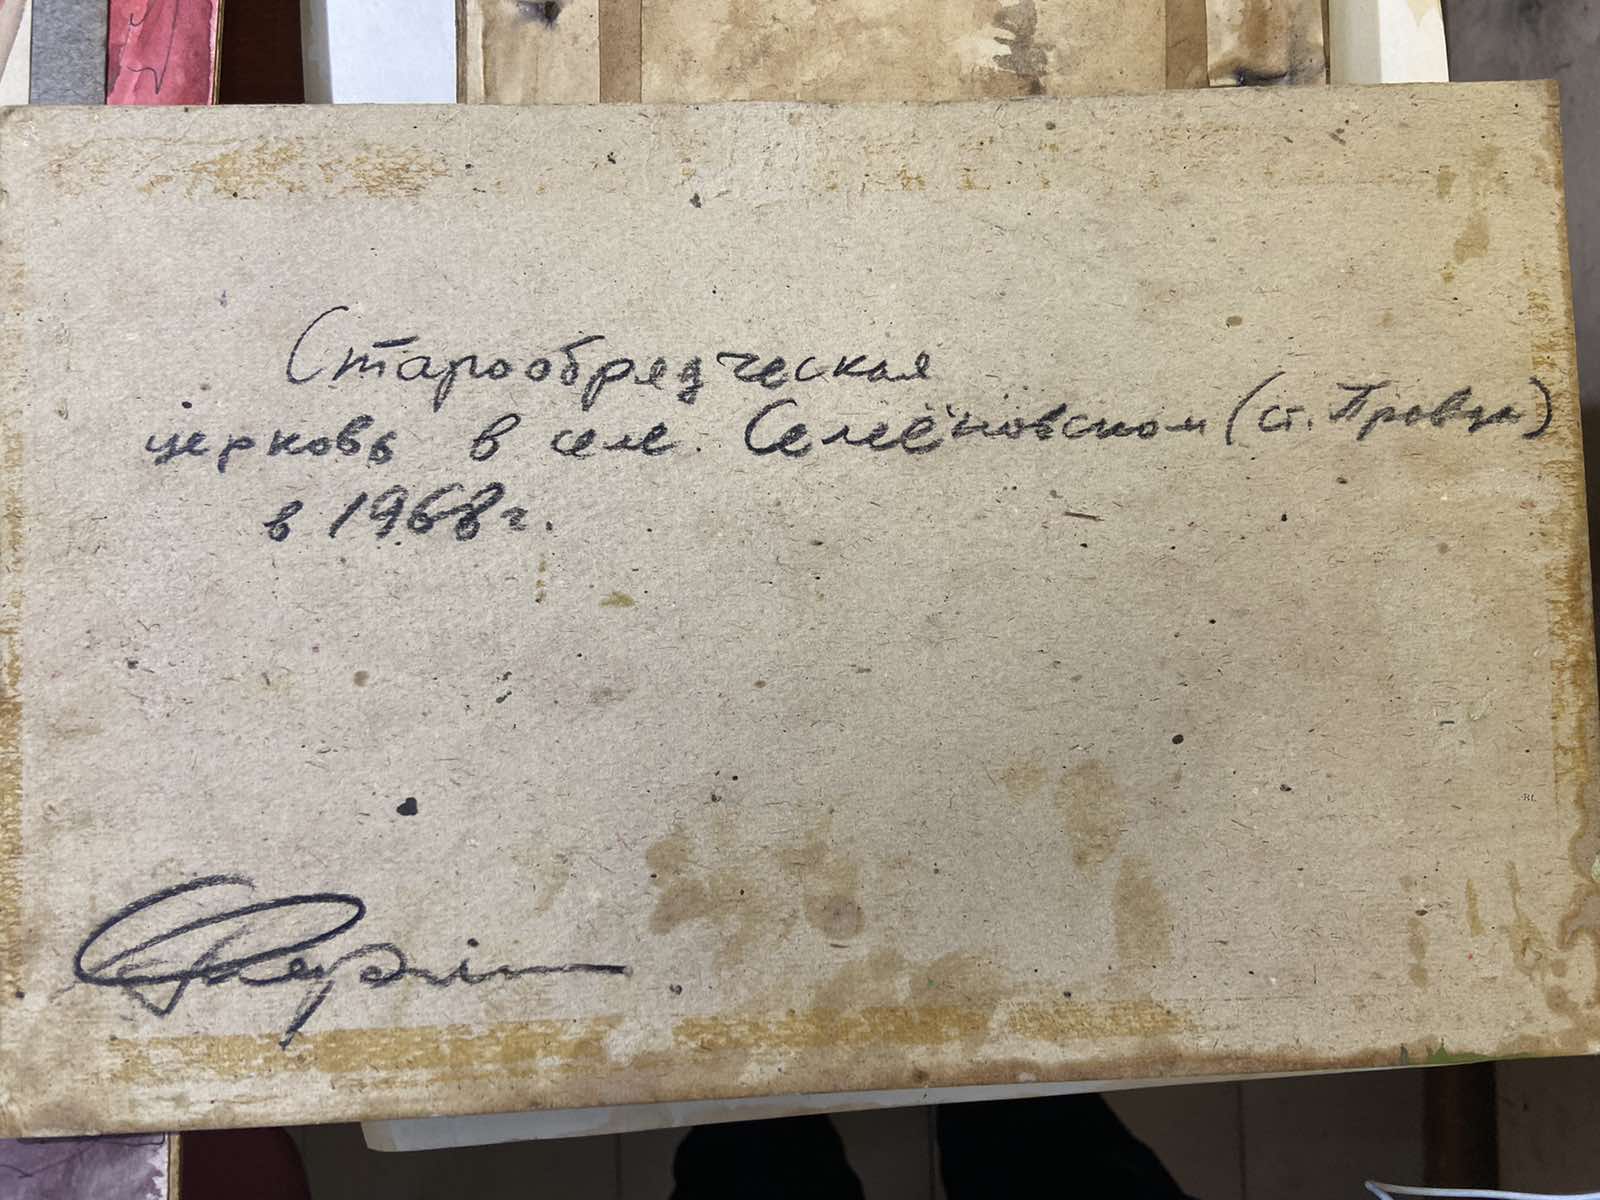 Старообрядческая
церковь в селе Селеёновском (ст. Правда)
в 1968 г.